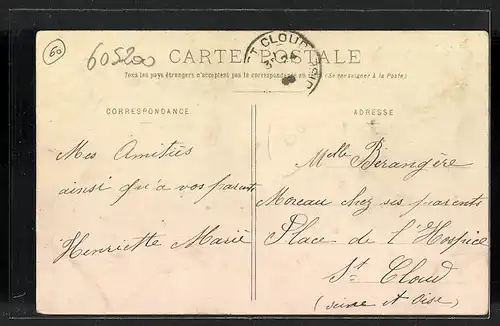 60
605200
CARTE POSTALE
Tous les pays étrangers n'acceptent pas la correspondance au (Se renseigner à la Poste)
ST CLOUD
CORRESPONDANCE
ADRESSE
Mes Amitiés
ainsi qu'a vos parents
Henriette Marie
Melle Berangère
Moreau chez ses parents
Place de l'Hospice
St Cloud
(Seine et Oise)